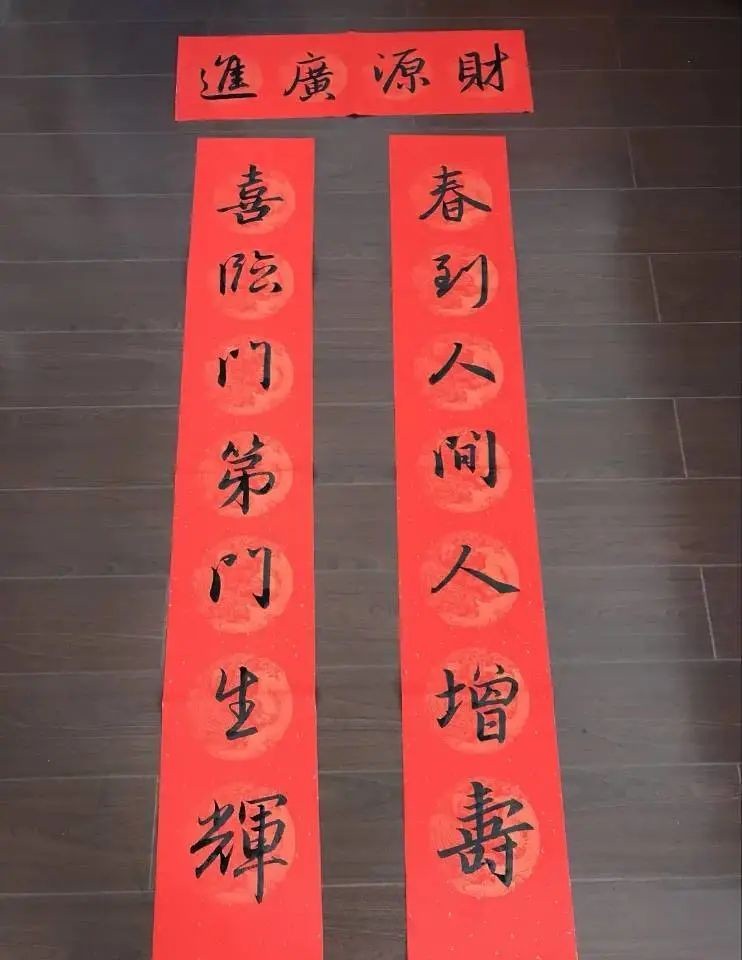 財源廣進
春到人間人增壽
喜臨門第門生輝